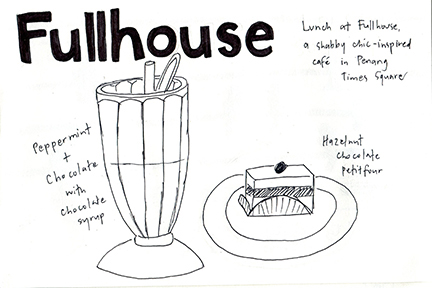 Fullhouse
Lunch at Fullhouse,
a shabby chic-inspired
café in Penang
Times Square
Peppermint
+
Chocolate
with
chocolate
syrup
Hazelnut
chocolate
petit four